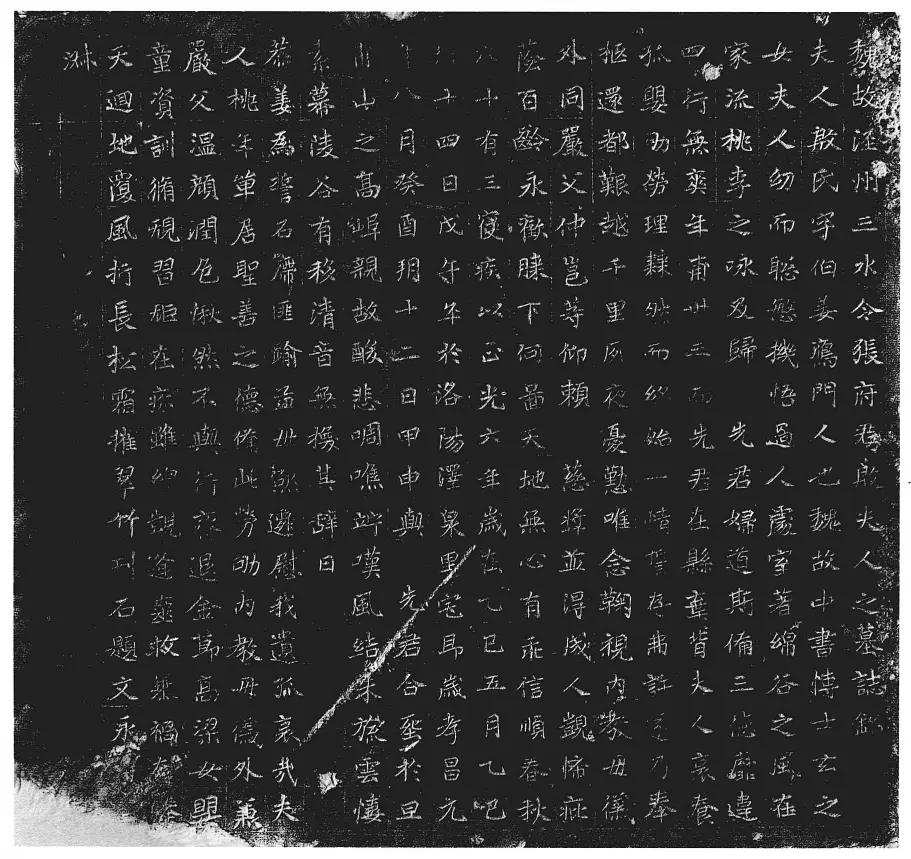 魏故涇州三水令張府君故殷夫人之墓誌銘
夫人殷氏字伯姜鴈門人也魏故中書博士玄之
女夫人幼而聡慜機悟過人處室著綿谷之風在
家流桃李之咏及歸　先君婦道斯俻三德靡違
四行無爽年甫卅五而先君在縣棄背夫人哀養
孤嬰劬勞理棘然而終始一情誓存弗許乃奉
柩還都艱越千里夙夜憂懃唯念鞠視内教毋儀
外同嚴父仲岂䓁仰賴　慈將並得成人觀悕疵
蔭百齡永歡膝下何啚天地無心有乖信順春秋
六十有三寑疾以正光六年歲在乙巳五月乙巳
十四日戊午卒於洛陽澤泉里宅即歲孝昌元
年八月癸酉朔十二日甲申與　先君合塟於旦
甫山之髙崿親故酸悲啁噍嘆風結未旅雲慎
素幕陵谷有移清音無撡其辝曰
恭姜為誓石席匪踰孟毋慰我遺孤哀哉夫
人桃年單居聖善之德俻此劳劬内教毋儀外兼
嚴父温顔潤色愀然不與行退金節髙梁女嬰
童資訓脩規習矩在疚雖幼親
天迴地覆風折長松霜摧翠竹刊石題文永
淋